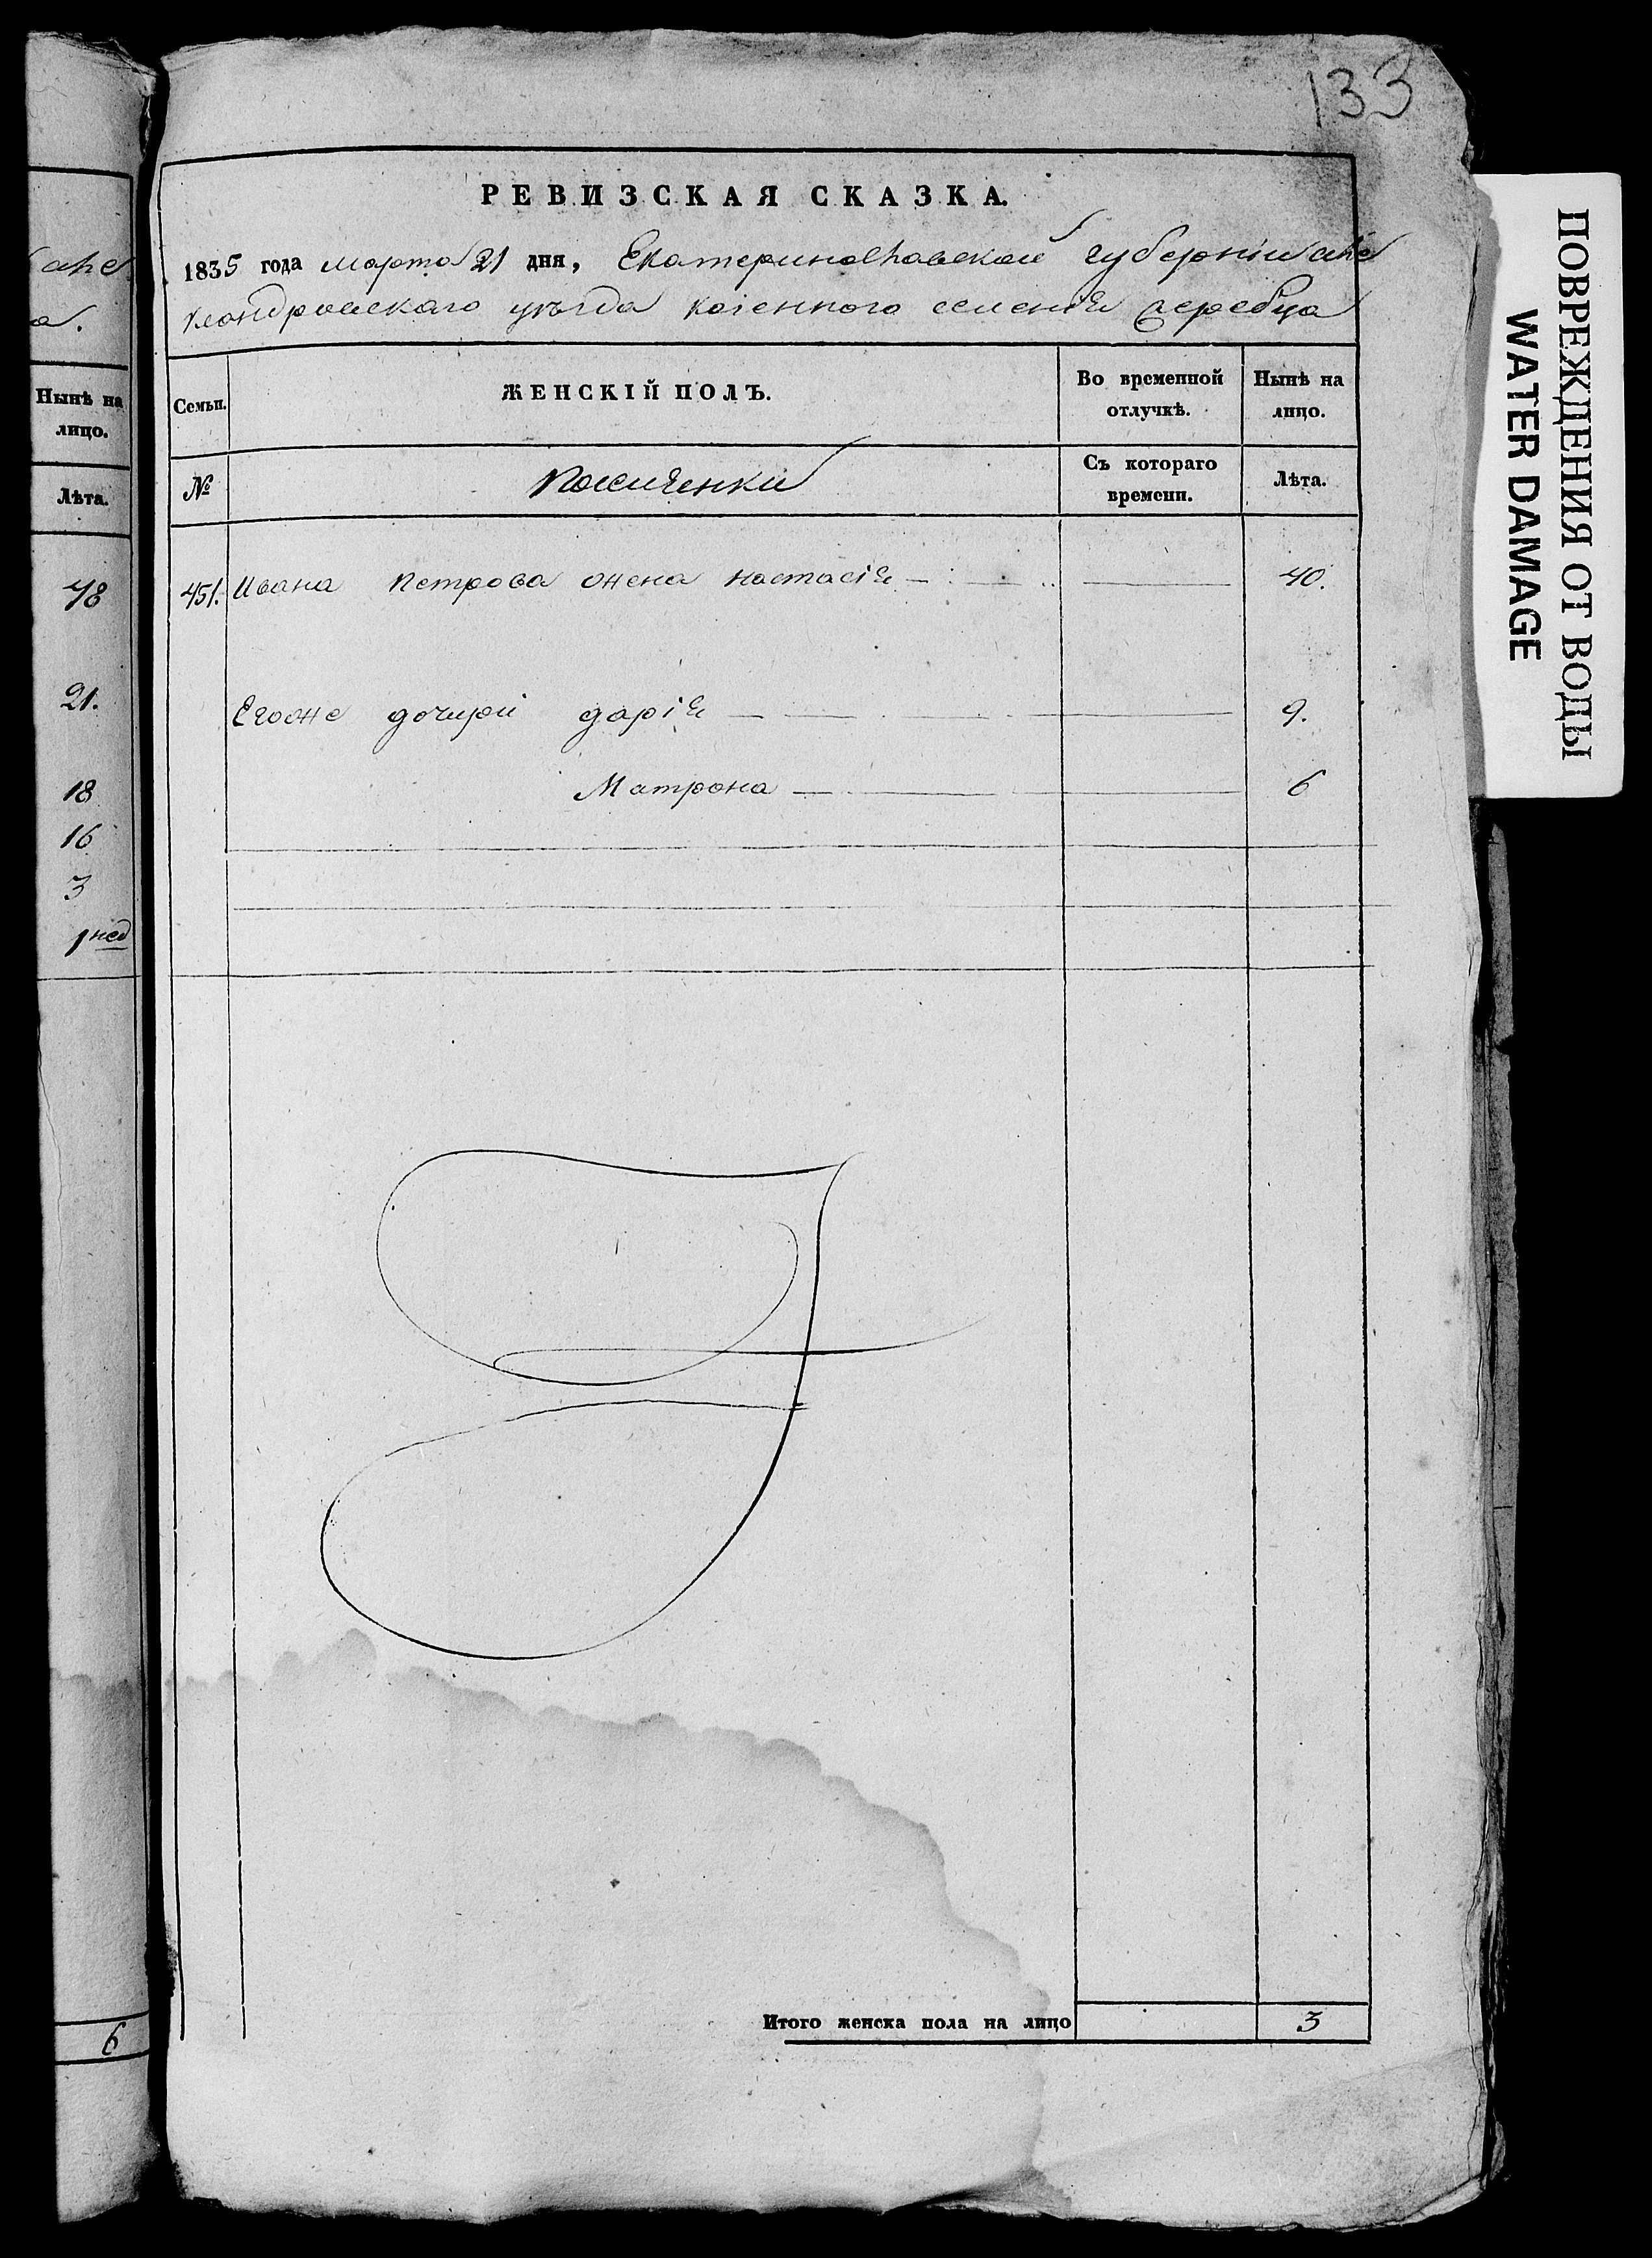 133
РЕВИЗСКАЯ СКАЗКА.
1835 года марта 21 дня, Екатеринославской губерніи але
ксандровскаго уѣзда казенного селенія
Семьи.
ЖЕНСКІЙ ПОЛЪ.
Во временной отлучкѣ.
Нынѣ на лицо.
№
Съ котораго времени.
Лѣта.
451. Ивана Петрова жена Настасія 40.
Егоже дочери Дарія 9.
Матрона 6
Итого женска пола на лицо 3
але
а.
Нынѣ на
лицо.
Лѣта.
48
21.
18
16
3
1 нед
6
ПОВРЕЖДЕНИЯ ОТ ВОДЫ
WATER DAMAGE